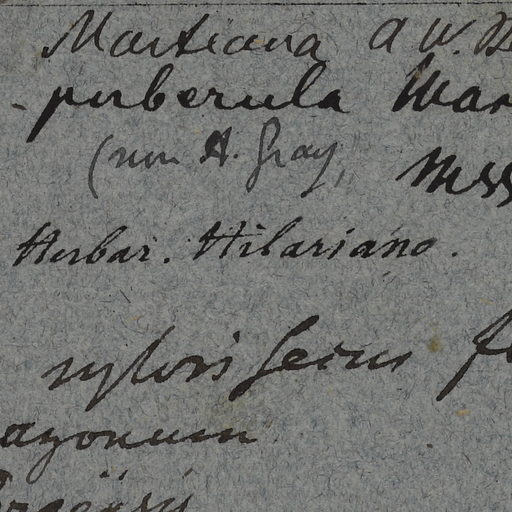 Martiana A W. B
puberula Mar
(non A. Gray,
Mss
Herbar. Hilariano.
sylvis secus fl
azonum